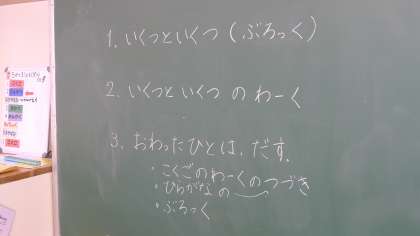 1. いくつといくつ (ぶろっく)
2. いくつといくつ の わーく
3. おわったひとは、だす。
・こくごのわーくのつづき
・ひらがなの
・ぶろっく